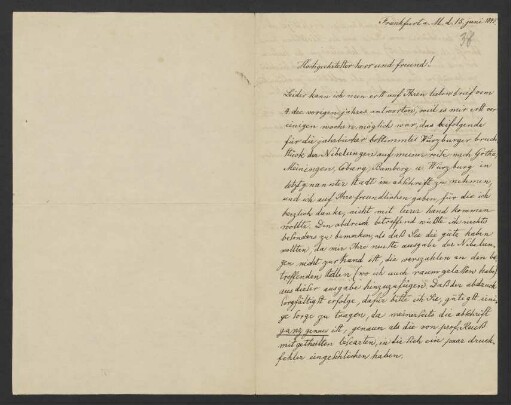 Frankfurt a. M. d. 15. juni 1895
38
Hochgeehrtester herr und freund!
Leider kann ich nun erst auf Ihren lieben brief vom
9. dec. vorigen jahres antworten, weil es mir erst vor
einigen wochen möglich war, das beifolgende
für die jahrbücher bestimmte Würzburger bruch-
stück der Nibelungen auf meiner reise nach Gotha,
Meiningen, Coburg, Bamberg u. Würzburg in
letztgenannter stadt in abschrift zu nehmen,
und ich auf Ihre freundlichen gaben, für die ich
herzlich danke, nicht mit leerer hand kommen
wollte. Den abdruck betreffend wüßte ich nichts
besonders zu bemerken, als daß Sie die güte haben
wollten, da mir Ihre neuste ausgabe der Nibelun-
gen nicht zur hand ist, die verszahlen an den be-
treffenden stellen (wo ich auch raum gelassen habe)
aus dieser ausgabe hinzuzufügen. Daß der abdruck
sorgfältigst erfolge, dafür bitte ich Sie, gütigst eini-
ge sorge zu tragen, da meinerseits die abschrift
ganz genau ist, genauer als die von prof. Reuß
mitgetheilten lesarten, in die sich ein paar druck-
fehler eingeschlichen haben.